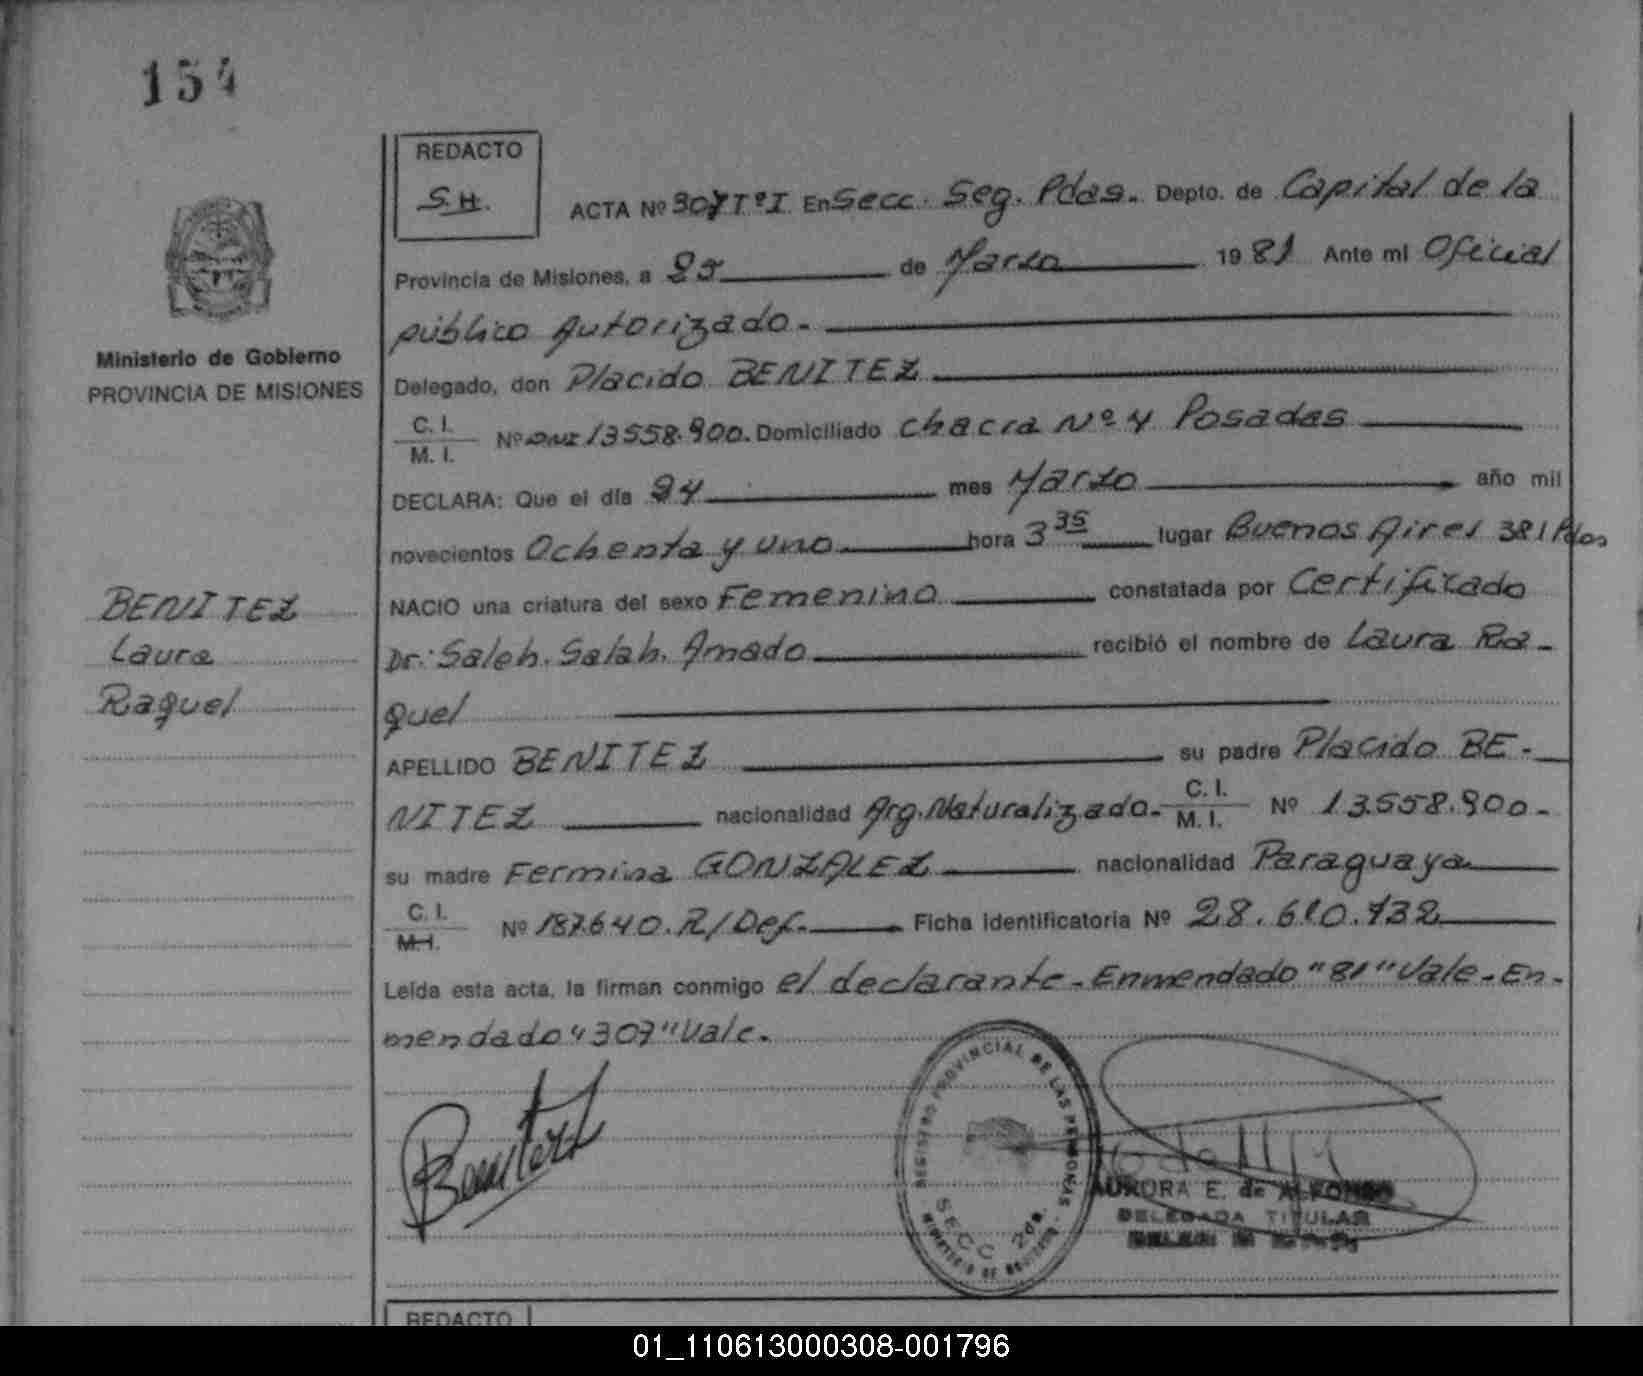 154
REDACTO
S.H.
ACTA Nº 307 Tº I En Secc. Seg. Pdas. Depto. de Capital de la
Provincia de Misiones, a 25 de Marzo 1981 Ante mi Oficial
público Autorizado.-
Delegado, don Placido BENITEZ
C. I.
M. I. Nº DNI 13558.900. Domiciliado chacra Nº 4 Posadas
DECLARA: Que el día 24 mes Marzo año mil
novecientos Ochenta y uno hora 3 35 lugar Buenos Aires 381 Pdas
NACIO una criatura del sexo Femenino constatada por Certificado
Dr: Saleh. Salah. Amado recibió el nombre de Laura Ra-
quel
APELLIDO BENITEZ su padre Placido BE-
NITEZ nacionalidad Arg. Naturalizado.- C. I. M. I. Nº 13.558.900.-
su madre Fermina GONZALEZ nacionalidad Paraguaya
C. I.
M. I. Nº 187.640. R/Def. Ficha identificatoria Nº 28.610.732
Leída esta acta, la firman conmigo el declarante.- Enmendado "81" Vale.- En-
mendado "307" Vale.
Ministerio de Gobierno
PROVINCIA DE MISIONES
BENITEZ
Laura
Raquel
Benitez
REGISTRO PROVINCIAL DE LAS PERSONAS
SECC 2da.
MINISTERIO DE GOBIERNO
AURORA E. de ALFONSO
DELEGADA TITULAR
REDACTO
01_110613000308-001796